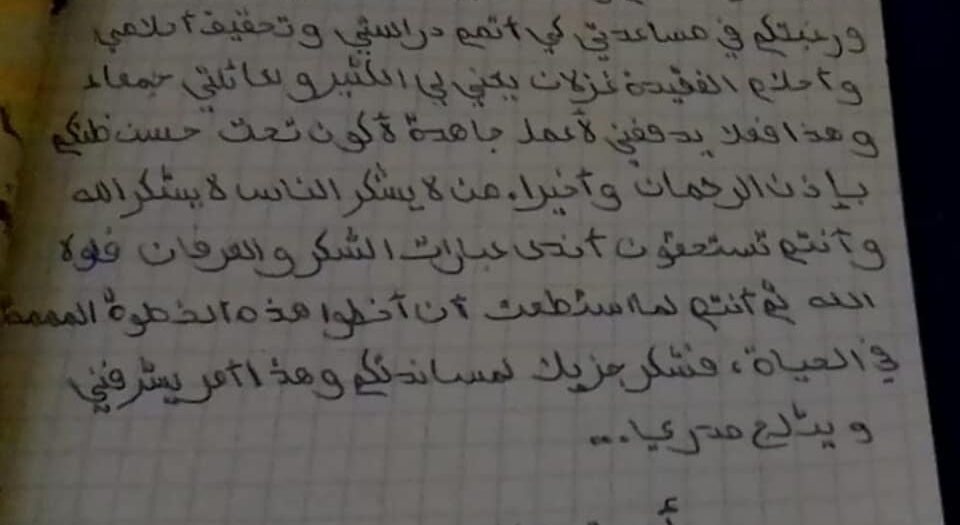 ورغبتكم في مساعدتي كي أتمم دراستي وتحقيق أحلامي
وأحلام الفقيدة غزلان يعني لي الكثير ولعائلتي جمعاء
وهذا فعلا يدفعني لأعمل جاهدة لأكون تحت حسن ظنكم
بإذن الرحمان وأخيرا، من لا يشكر الناس لا يشكر الله
وأنتم تستحقون أندى عبارات الشكر والعرفان فلولا
الله ثم أنتم لما استطعت أن أخطوا هذه الخطوة المهمة
في الحياة، فشكر جزيلا لمساندتكم وهذا أمر يشرفني
ويثلج صدري...